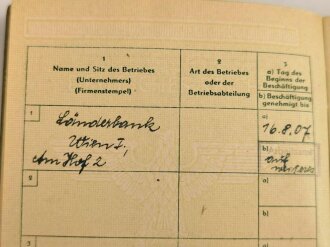 1
Name und Sitz des Betriebes
(Unternehmers)
(Firmenstempel)
2
Art des Betriebes
oder der
Betriebsabteilung
3
a) Tag des
Beginns der
Beschäftigung
b) Beschäftigung
genehmigt bis
1
Länderbank
Wien I,
Am Hof 2
a)
16.8.07
b)
auf
weiteres
2
a)
b)
3
a)